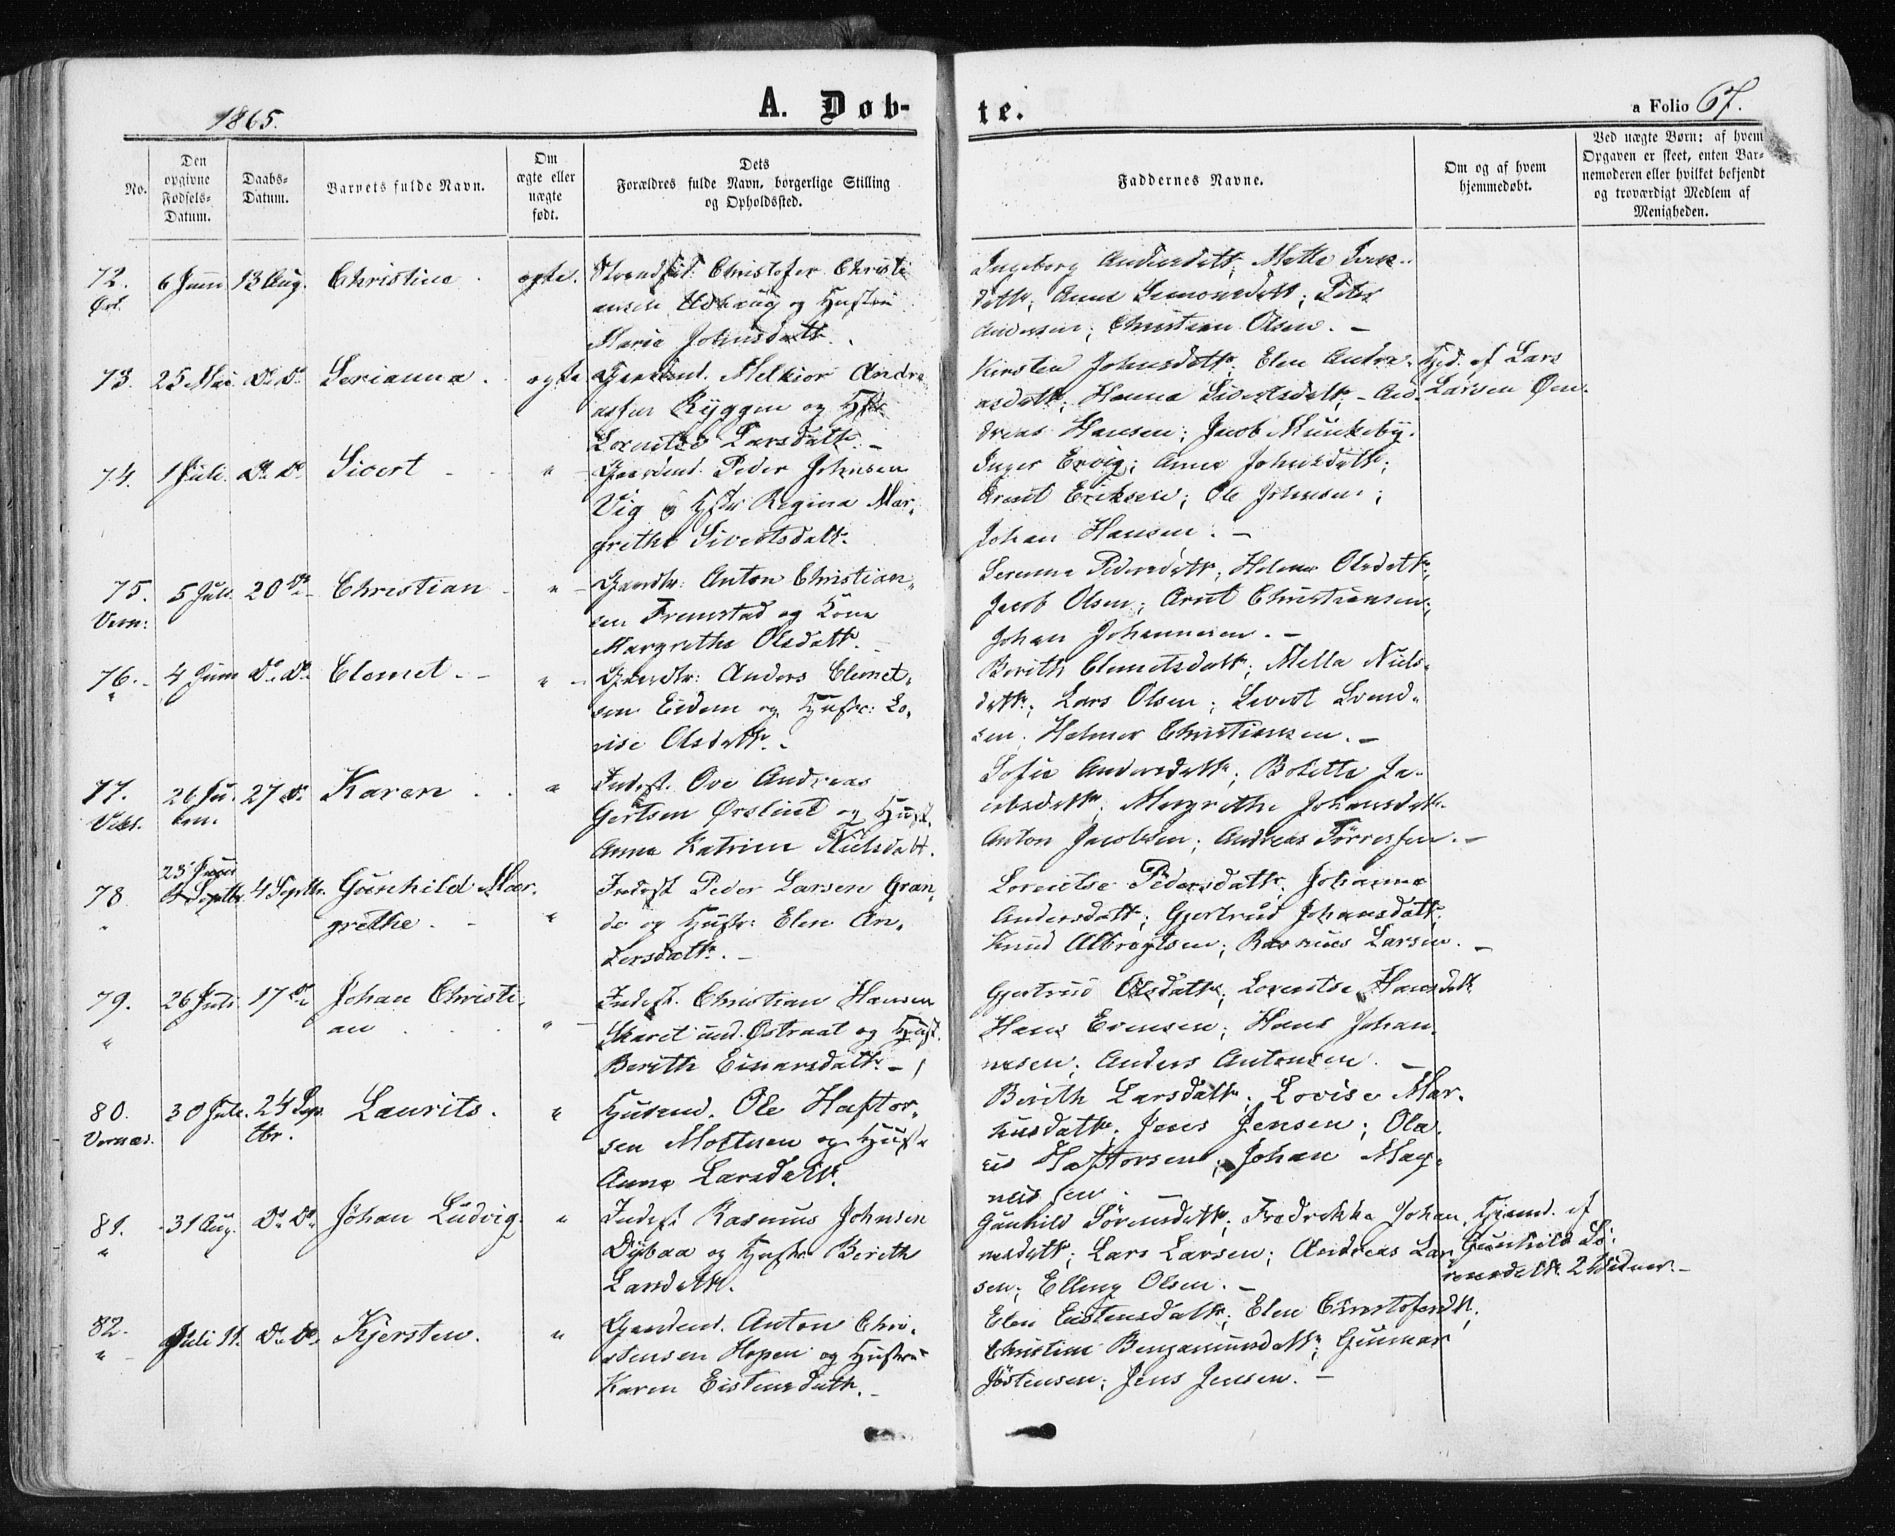 1865.
A. Døb-
te.
a Folio 67.
No.
Den opgivne Fødsels-Datum.
Daabs-Datum.
Barnets fulde Navn.
Om ægte eller nægte født.
Dets
Forældres fulde Navn, borgerlige Stilling
og Opholdssted.
Faddernes Navne.
Om og af hvem
hjemmedøbt.
Ved nægte Børn: af hvem
Opgaven er skeet, enten Bar-
nemoderen eller hvilket bekjendt
og troværdigt Medlem af
Menigheden.
72. 6 Juni 13 Aug. Christine ægte. Strandsid. Christofer Christi
ansen Udhaug og Hustru
Maria Johnsdatt.
Ingeborg Andersdatt; Mette
datt; Anne Simonsdatt; Peter
Andersen; Christian Olsen. –
73. 25 Mai Do Do Serianna ægte Gaardmd. Melkior Andre
assen Ryggen og Hstr
Lorentse Larsdatt. –
Kirsten Johnsdatt; Elen Andre-
asdatt; Hanna Sivertsdatt; – An-
dreas Hansen; Jacob Munkeby.
Hjd. af Lars
Larsen
74. 1 Juli. Do Do Sivert " Gaardmd. Peder Johnsen
Vig og Hstr Regina Mar-
grethe Sivertsdatt.
Inger Ervig; Anna Johnsdatt;
Arent Eriksen; Ole Johnsen;
Johan Hansen. –
75. 5 Juli 20 Do Christian " Gaardbr: Anton Christian-
sen Fremstad og Kone
Margrethe Olsdatt.
Serenna Pedersdatt; Helena Olsdatt;
Jacob Olsen; Arnt Christiansen;
Johan Johannesen. –
76. 4 Juni Do Do Clemet " Gaardbr: Anders Clemet-
sen Eidem og Hustr: Lo-
vise Olsdatt. –
Berith Clemetsdatt; Mella Niels-
datt; Lars Olsen; Sivert Svend-
sen; Helmer Christiansen. –
77. 26 Ju- 27 Do Karen " Inderst. Ove Andreas
Gertsen Ørslint og Hust.
Anna Katrine Nielsdatt.
Sofie Andersdatt; Bolette Ja-
cobsdatt; Margrethe Johansdatt.
Anton Jacobsen; Andreas Tørressen. –
78. 4 Septbr. Gunhild Mar-
grethe. " Inderst Peder Larsen Gran-
de og Hustr: Elen An-
dersdatt. –
Lorentse Pedersdatt; Johanna
Andersdatt; Gjertrud Johansdatt;
Knud Albregtsen; Rasmus Larsen. –
79. 26 Juli 17 Do Johan Christi-
an " Inderst. Christian Hansen
Skaret und. Østraat og Hust.
Berith Einarsdatt. –
Gjertrud Olsdatt; Lorentse Hansdatt
Hans Evensen; Hans Johan-
nesen; Anders Antonsen. –
80. 30 Juli. 24 Sep
tbr. Laurits. " Husmd. Ole Haftor-
sen Moltuen og Hustr
Anna Larsdatt.
Berith Larsdatt; Lovise Mar-
kusdatt; Jens Jensen; Ola-
us Haftorsen; Johan Mag-
nussen. –
81. 31 Aug. Do Do Johan Ludvig. " Inderst Rasmus Johnsen
Dybaa og Hustr Berith
Larsdatt.
Gunhild Sørensdatt; Fredrekka Johan-
nesdatt; Lars Larsen; Andreas Lar
sen; Elling Olsen. –
Hjemd. af
Gunhild Sø-
rensdatt. 2 Vidner. –
82. Juli 11. Do Do Kjersten. " Gaardmd. Anton Chri-
stensen Hopen og Hustru
Karen Eistensdatt. –
Elen Eistensdatt; Elen Christofersdt;
Christine Benjaminsdatt; Gunnar
Jøstensen; Jens Jensen. –